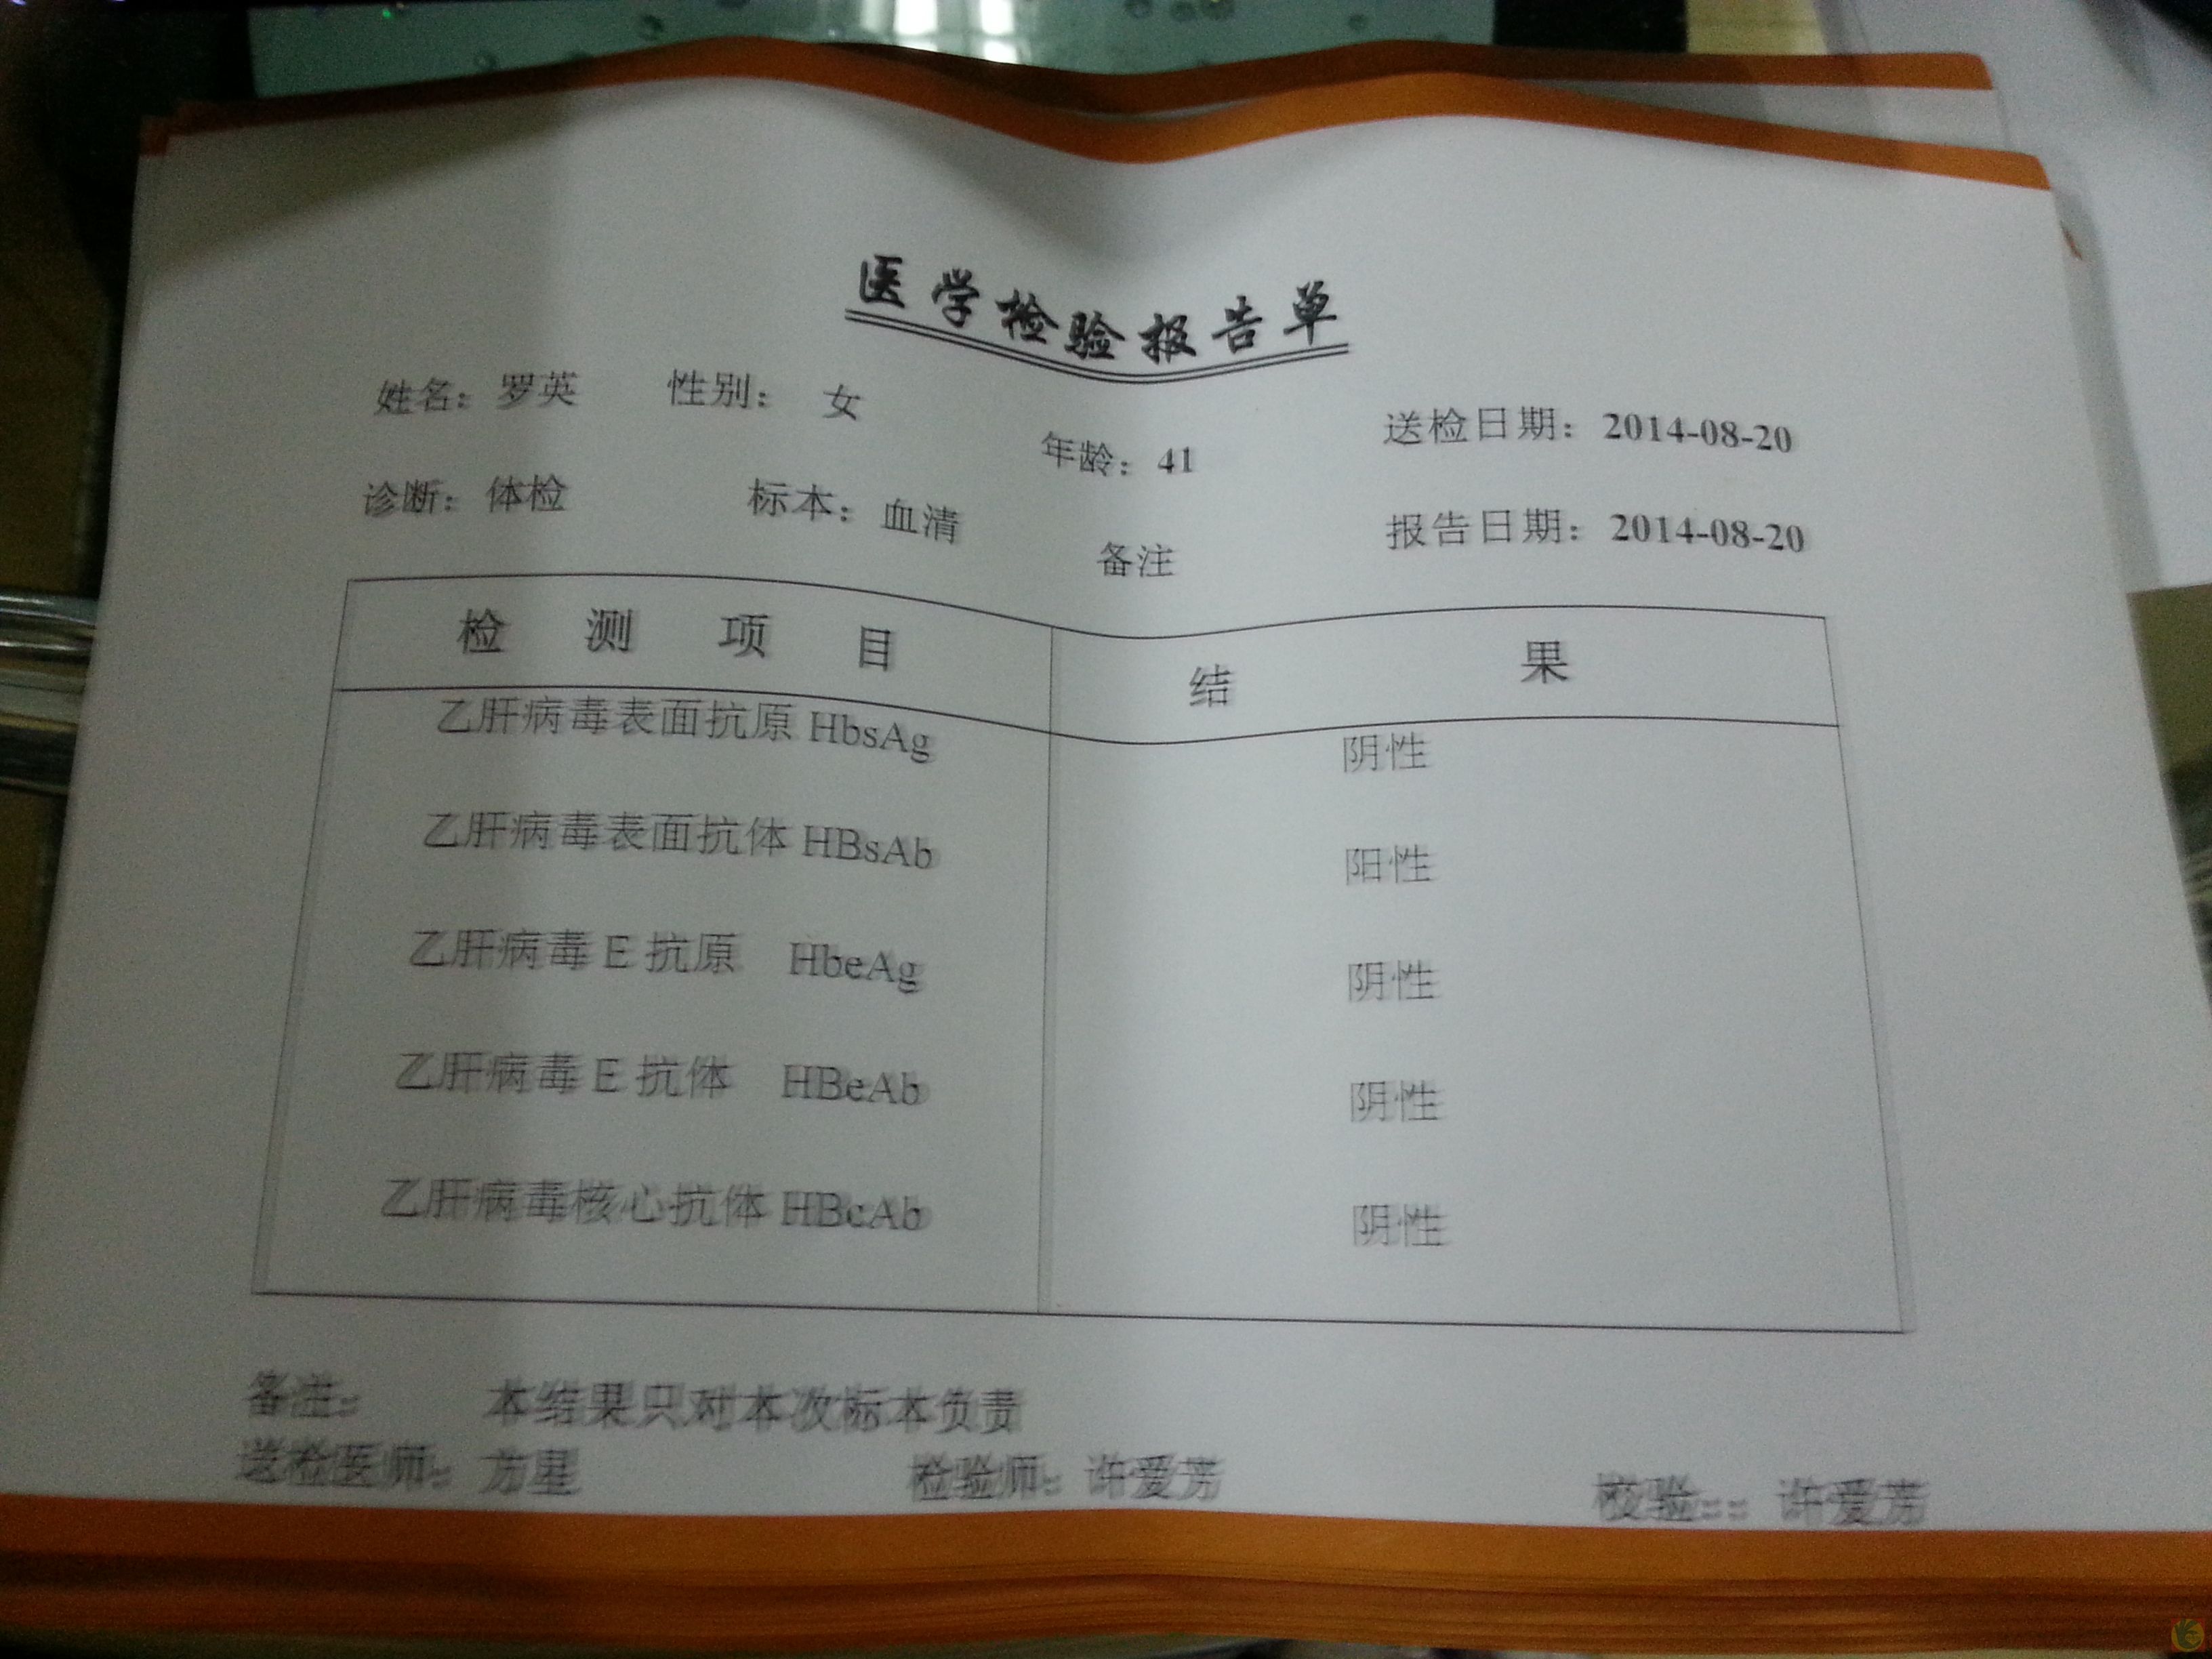 医学检验报告单
姓名：罗英 性别： 女 年龄：41 送检日期：2014-08-20
诊断：体检 标本：血清 备注 报告日期：2014-08-20
检 测 项 目 结 果
乙肝病毒表面抗原 HbsAg 阴性
乙肝病毒表面抗体 HBsAb 阳性
乙肝病毒 E 抗原 HbeAg 阴性
乙肝病毒 E 抗体 HBeAb 阴性
乙肝病毒核心抗体 HBcAb 阴性
备注： 本结果只对本次标本负责
送检医师：方星 检验师：许爱芳 校验：：许爱芳